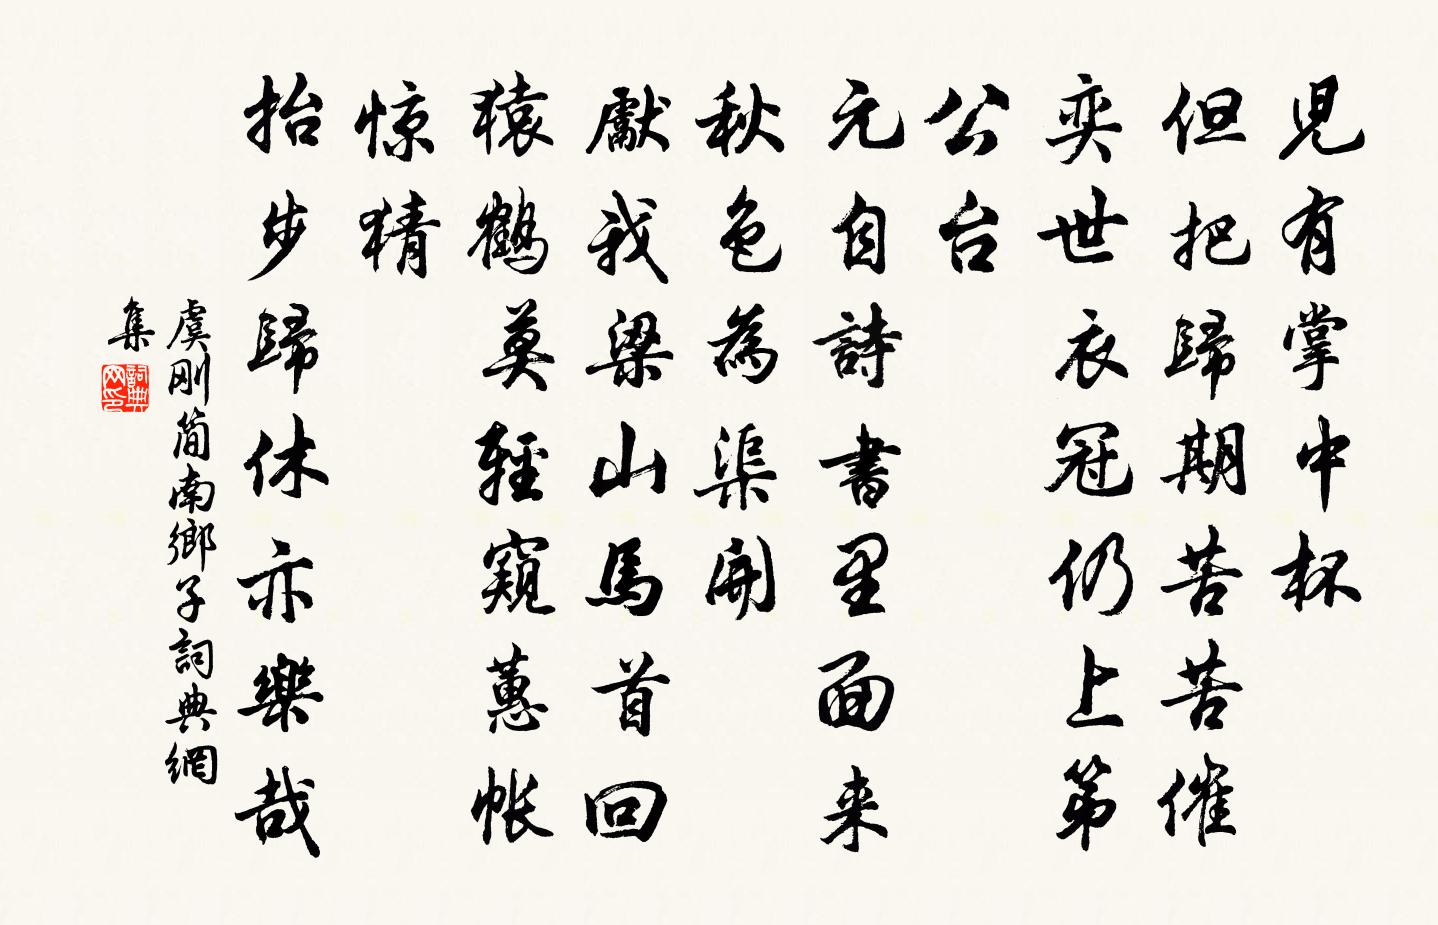 児有掌中杯
但把歸期苦苦催
奕世衣冠仍上第
公台
元自詩書里面来
秋色為渠開
獻我梁山馬首回
猿鶴莫輕窺蕙帐
惊猜
抬步歸休亦樂哉
虞刚简南鄉子詞典網
集
詞典网印